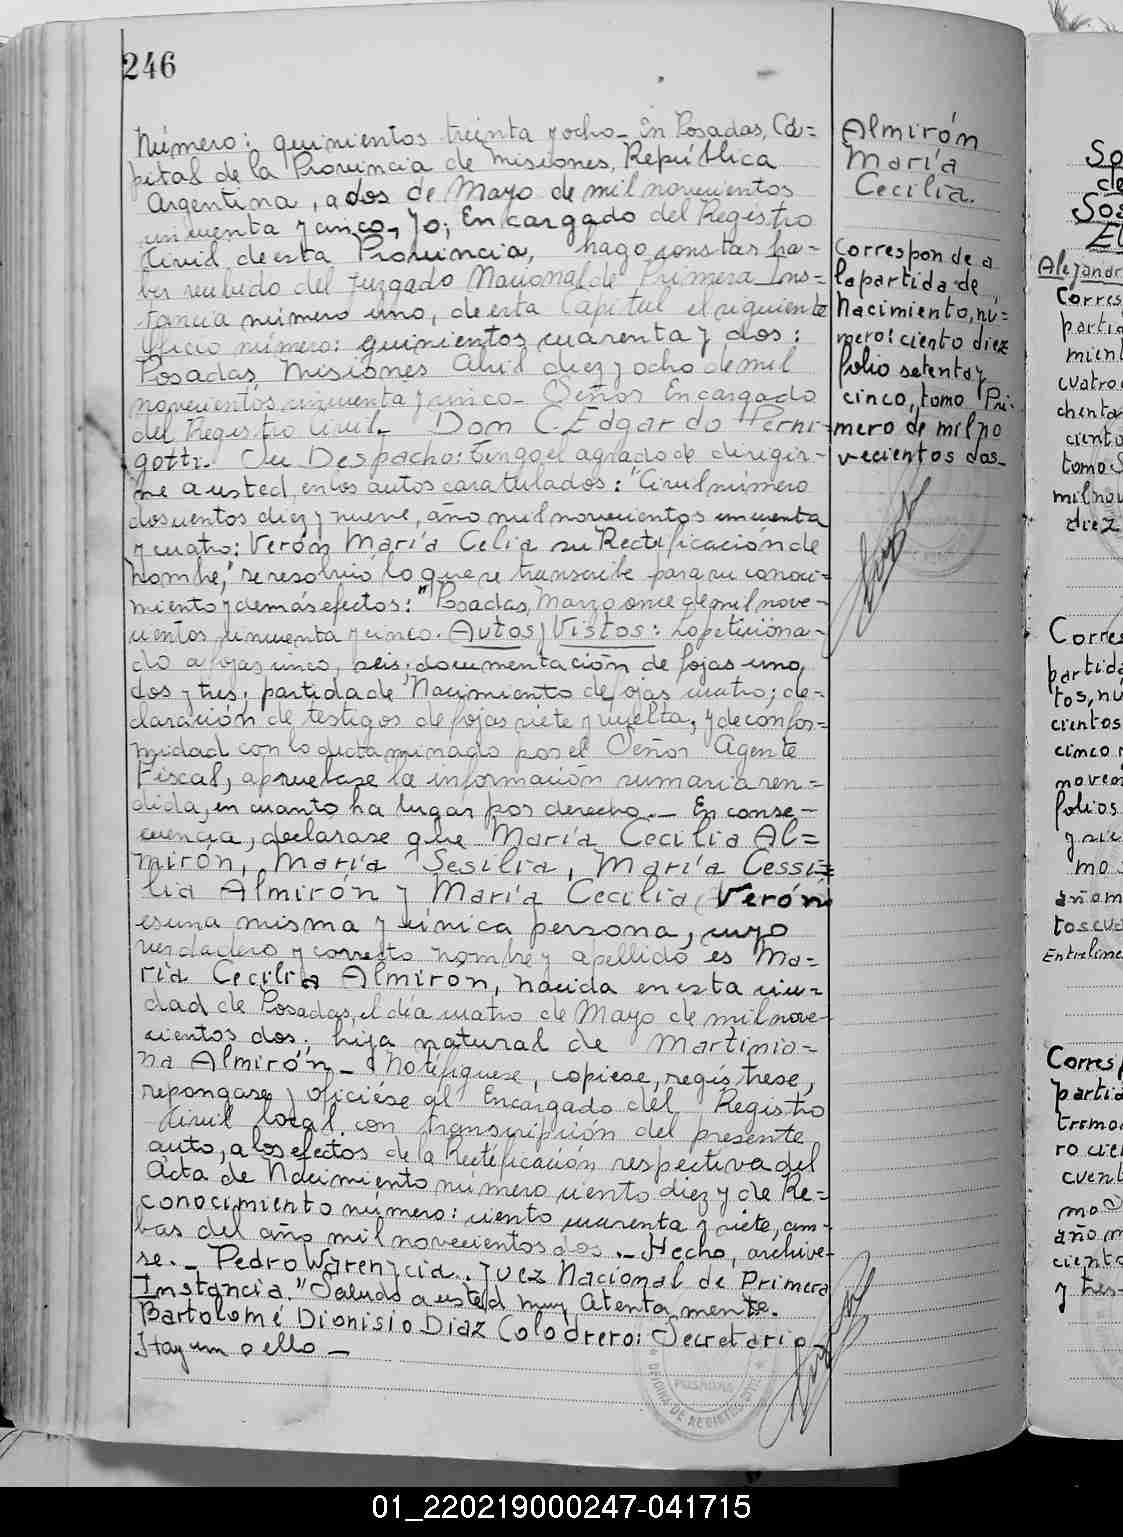 246
Número: quinientos treinta y ocho- En Posadas, Ca=
pital de la Provincia de Misiones, República
Argentina, a dos de Mayo de mil novecientos
cincuenta y cinco, yo; Encargado del Registro
Civil de esta Provincia, hago constar ha-
ber recibido del Juzgado Nacional de Primera Ins-
tancia número uno, de esta Capital el siguiente
Oficio número: quinientos cuarenta y dos:
Posadas, Misiones Abril diez y ocho de mil
novecientos cincuenta y cinco- Señor Encargado
del Registro Civil- Don C. Edgardo Perni-
gotti. Su Despacho: Tengo el agrado de dirigir-
me a usted, en los autos caratulados: "Civil número
doscientos diez y nueve, año mil novecientos cincuenta
y cuatro: Verón María Celia su Rectificación de
nombre," se resolvió lo que se transcribe para su conoci-
miento y demás efectos: "Posadas, Marzo once de mil nove-
cientos cincuenta y cinco. Autos y Vistos: Lo peticiona-
do a fojas cinco, seis; documentación de fojas uno,
dos y tres; partida de Nacimiento de fojas cuatro; de-
claración de testigos de fojas siete y vuelta, y de confor-
midad con lo dictaminado por el Señor Agente
Fiscal, apruebase la información sumaria ren-
dida, en cuanto ha lugar por derecho.- En conse-
cuencia, declarase que María Cecilia Al=
mirón, María Sesilia, María Cessi=
lia Almirón y María Cecilia Verón
es una misma y única persona, cuyo
verdadero y correcto nombre y apellido es Ma=
ría Cecilia Almiron, nacida en esta ciu-
dad de Posadas, el día cuatro de Mayo de mil nove-
cientos dos; hija natural de Martinia-
na Almirón- Notifiquese, copiese, registrese,
repongase y oficiése al Encargado del Registro
Civil local, con transcripción del presente
auto, a los efectos de la Rectificación respectiva del
Acta de Nacimiento número ciento diez y de Re=
conocimiento número: ciento cuarenta y siete, am-
bas del año mil novecientos dos.- Hecho, archive-
se.- Pedro Warenycia. Juez Nacional de Primera
Instancia." Saludo a usted muy atentamente.
Bartolomé Dionisio Diaz Colodrero: Secretario
Hay un sello-
POSADAS
OFICINA DE REGISTRO
Almirón
María
Cecilia.
Corresponde a
la partida de
Nacimiento, nú=
mero: ciento diez
folio setenta y
cinco, tomo Pri-
mero de mil no
vecientos dos-
So
de
Sos
El
Alejandr
Corres
partid
mient
cuatro
chenta
ciento
tomo S
mil nov
diez
Corres
partida
tos, nú
cientos
cinco
novec
folios
y sie
mo
año m
tos cua
Entreline
Corresp
partid
tromo
ro cie
cuent
mo
año m
ciento
y tres-
01_220219000247-041715